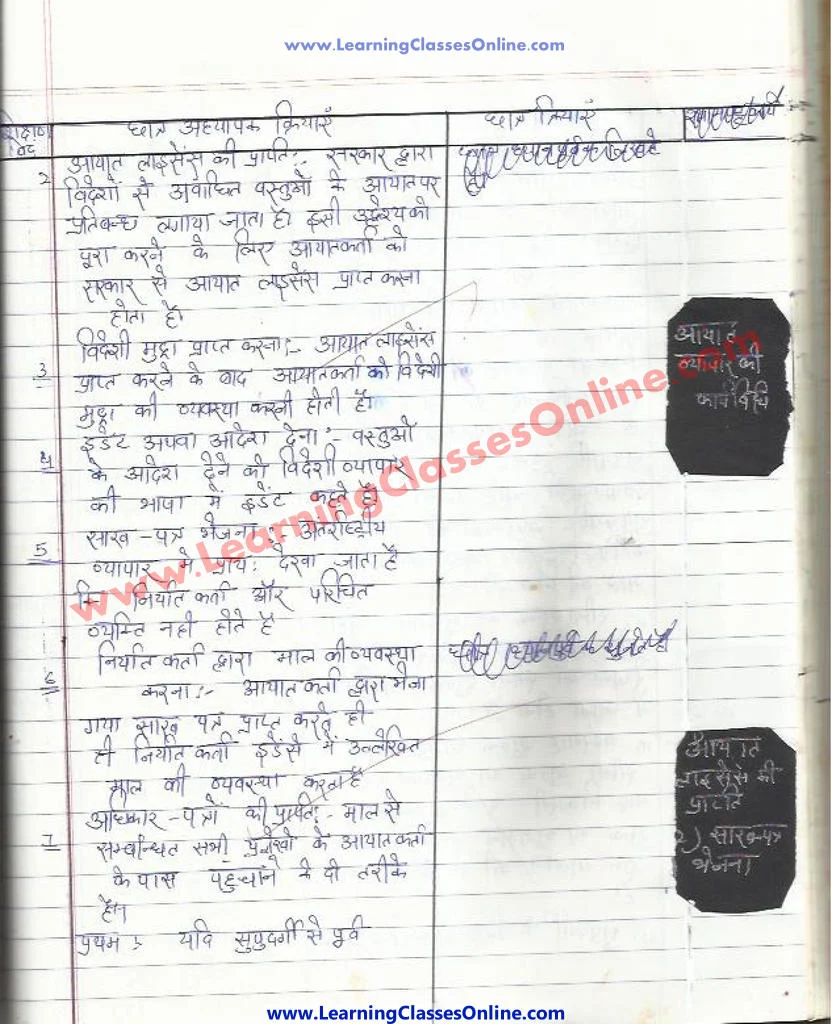 www.LearningClassesOnline.com
छात्र अध्यापक क्रियाएं
छात्र क्रियाएं
2
आयात लाइसेंस की प्राप्ति:- सरकार द्वारा
विदेशों से अवांधित वस्तुओं के आयात पर
प्रतिबन्ध लगाया जाता है। इसी उद्देश्य को
पूरा करने के लिए आयातकर्ता को
सरकार से आयात लाइसेंस प्राप्त करना
होता है।
3
विदेशी मुद्रा प्राप्त करना:- आयात लाइसेंस
प्राप्त करने के बाद आयातकर्ता को विदेशी
मुद्रा की व्यवस्था करनी होती है।
4
इंडेंट अथवा आदेश देना:- वस्तुओं
के आदेश देने को विदेशी व्यापार
की भाषा में इंडेंट कहते है।
5
साख-पत्र भेजना:- अंतर्राष्ट्रीय
व्यापार में प्राय: देखा जाता है
कि निर्यात कर्ता और परिचित
व्यक्ति नही होते है
6
निर्यात कर्ता द्वारा माल की व्यवस्था
करना:- आयातकर्ता द्वारा भेजा
गया साख पत्र प्राप्त करते ही
ही निर्यात कर्ता इंडेंसे में उल्लेखित
माल की व्यवस्था करता है
7
अधिकार-पत्रों की प्राप्ति:- माल से
सम्बन्धित सभी प्रलेखो के आयातकर्ता
के पास पहुचाने के दो तरीके
है।
प्रथम:- यदि सुपुदर्गी से पूर्व
आयात
व्यापार की
कार्यविधि
आयात
लाइसेंस की
प्राप्ति
2) साख-पत्र
भेजना
www.LearningClassesOnline.com
www.LearningClassesOnline.com